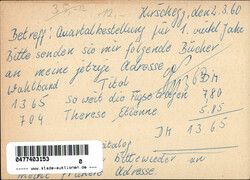 Hirschegg, den 2.3.60
Betreff: Quartalbestellung für 1. viertel Jahr
Bitte senden sie mir folgende Bücher
an meine jetzige Adresse
Wahlband Tibol DM
1365 so weit die Füße tragen 7.80
704 Therese Etienne 5.85
DM 13.65
bitte wieder an
meine frühere Adresse
0477403153
www.klade-auktionen.de